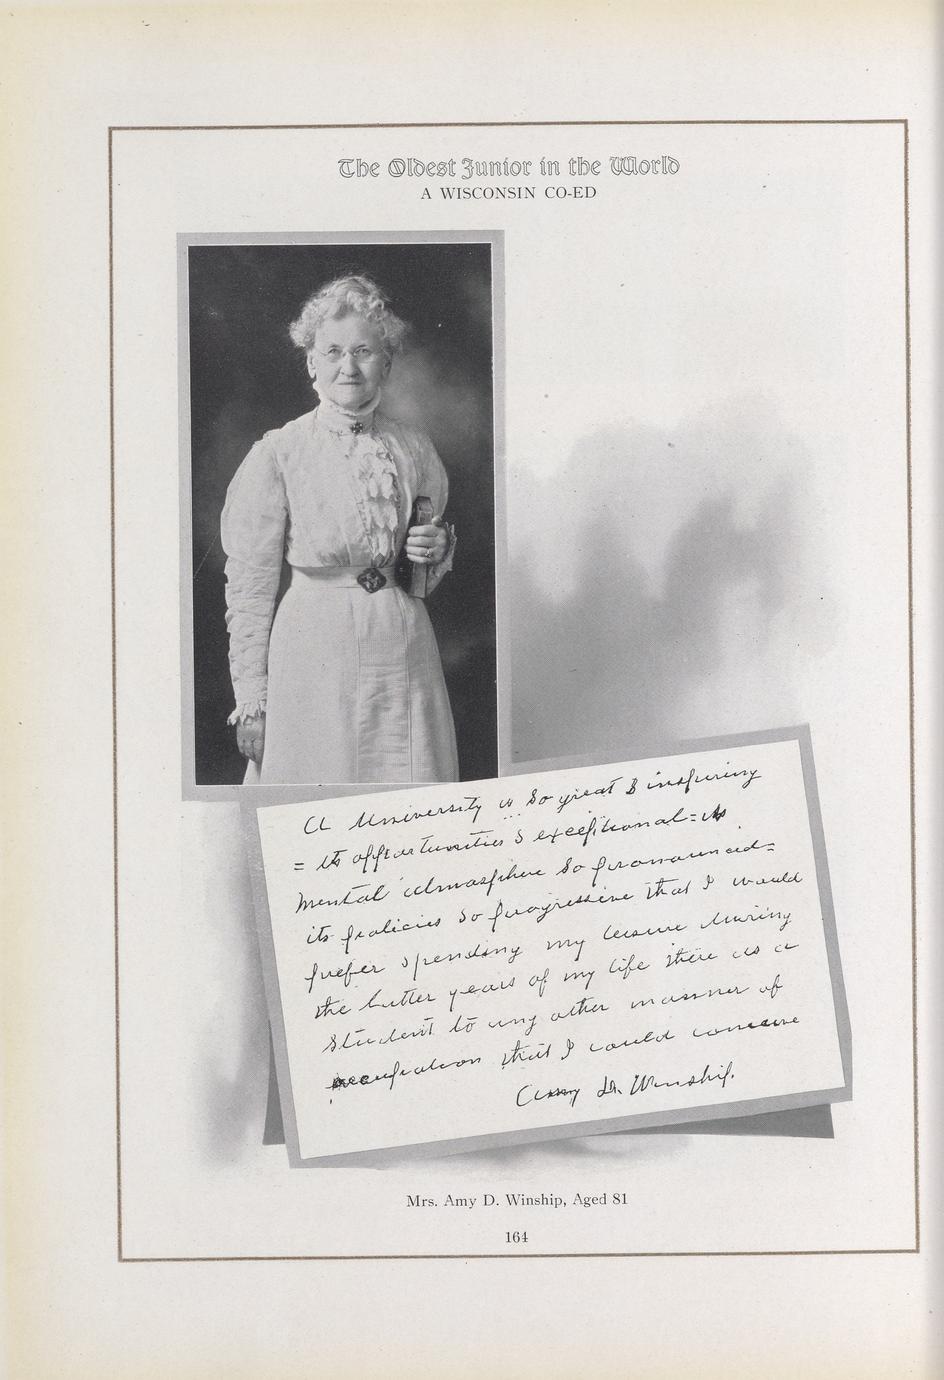 The Oldest Junior in the World
A WISCONSIN CO-ED
A University is so great & inspiring
= its opportunities & exceptional = its
mental atmosphere so pronounced =
its policies so progressive that I would
prefer spending my leisure during
the latter years of my life there as a
student to any other manner of
occupation that I could conceive
Amy D. Winship.
Mrs. Amy D. Winship, Aged 81
164